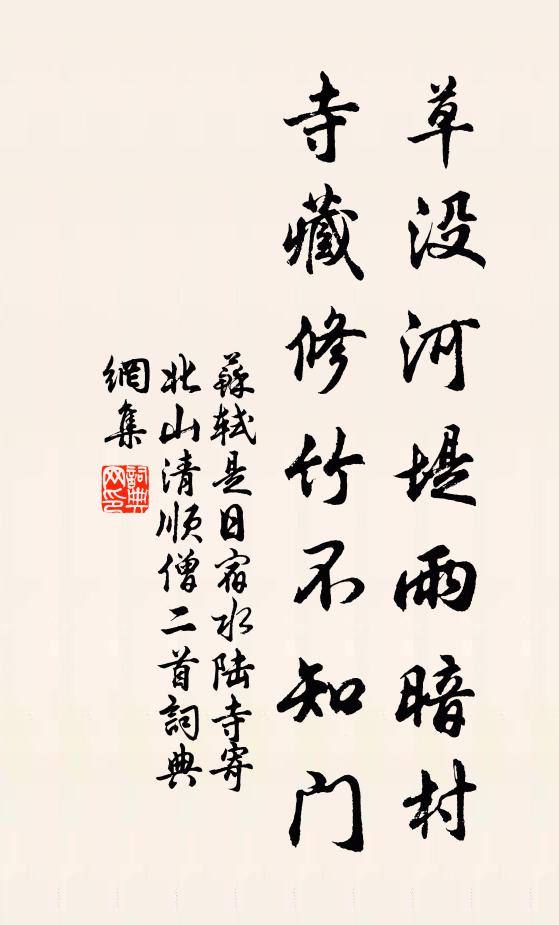 草没河堤雨暗村
寺藏修竹不知門
蘇軾是日宿水陆寺寄
北山清順僧二首詞典
網集
詞典
网印